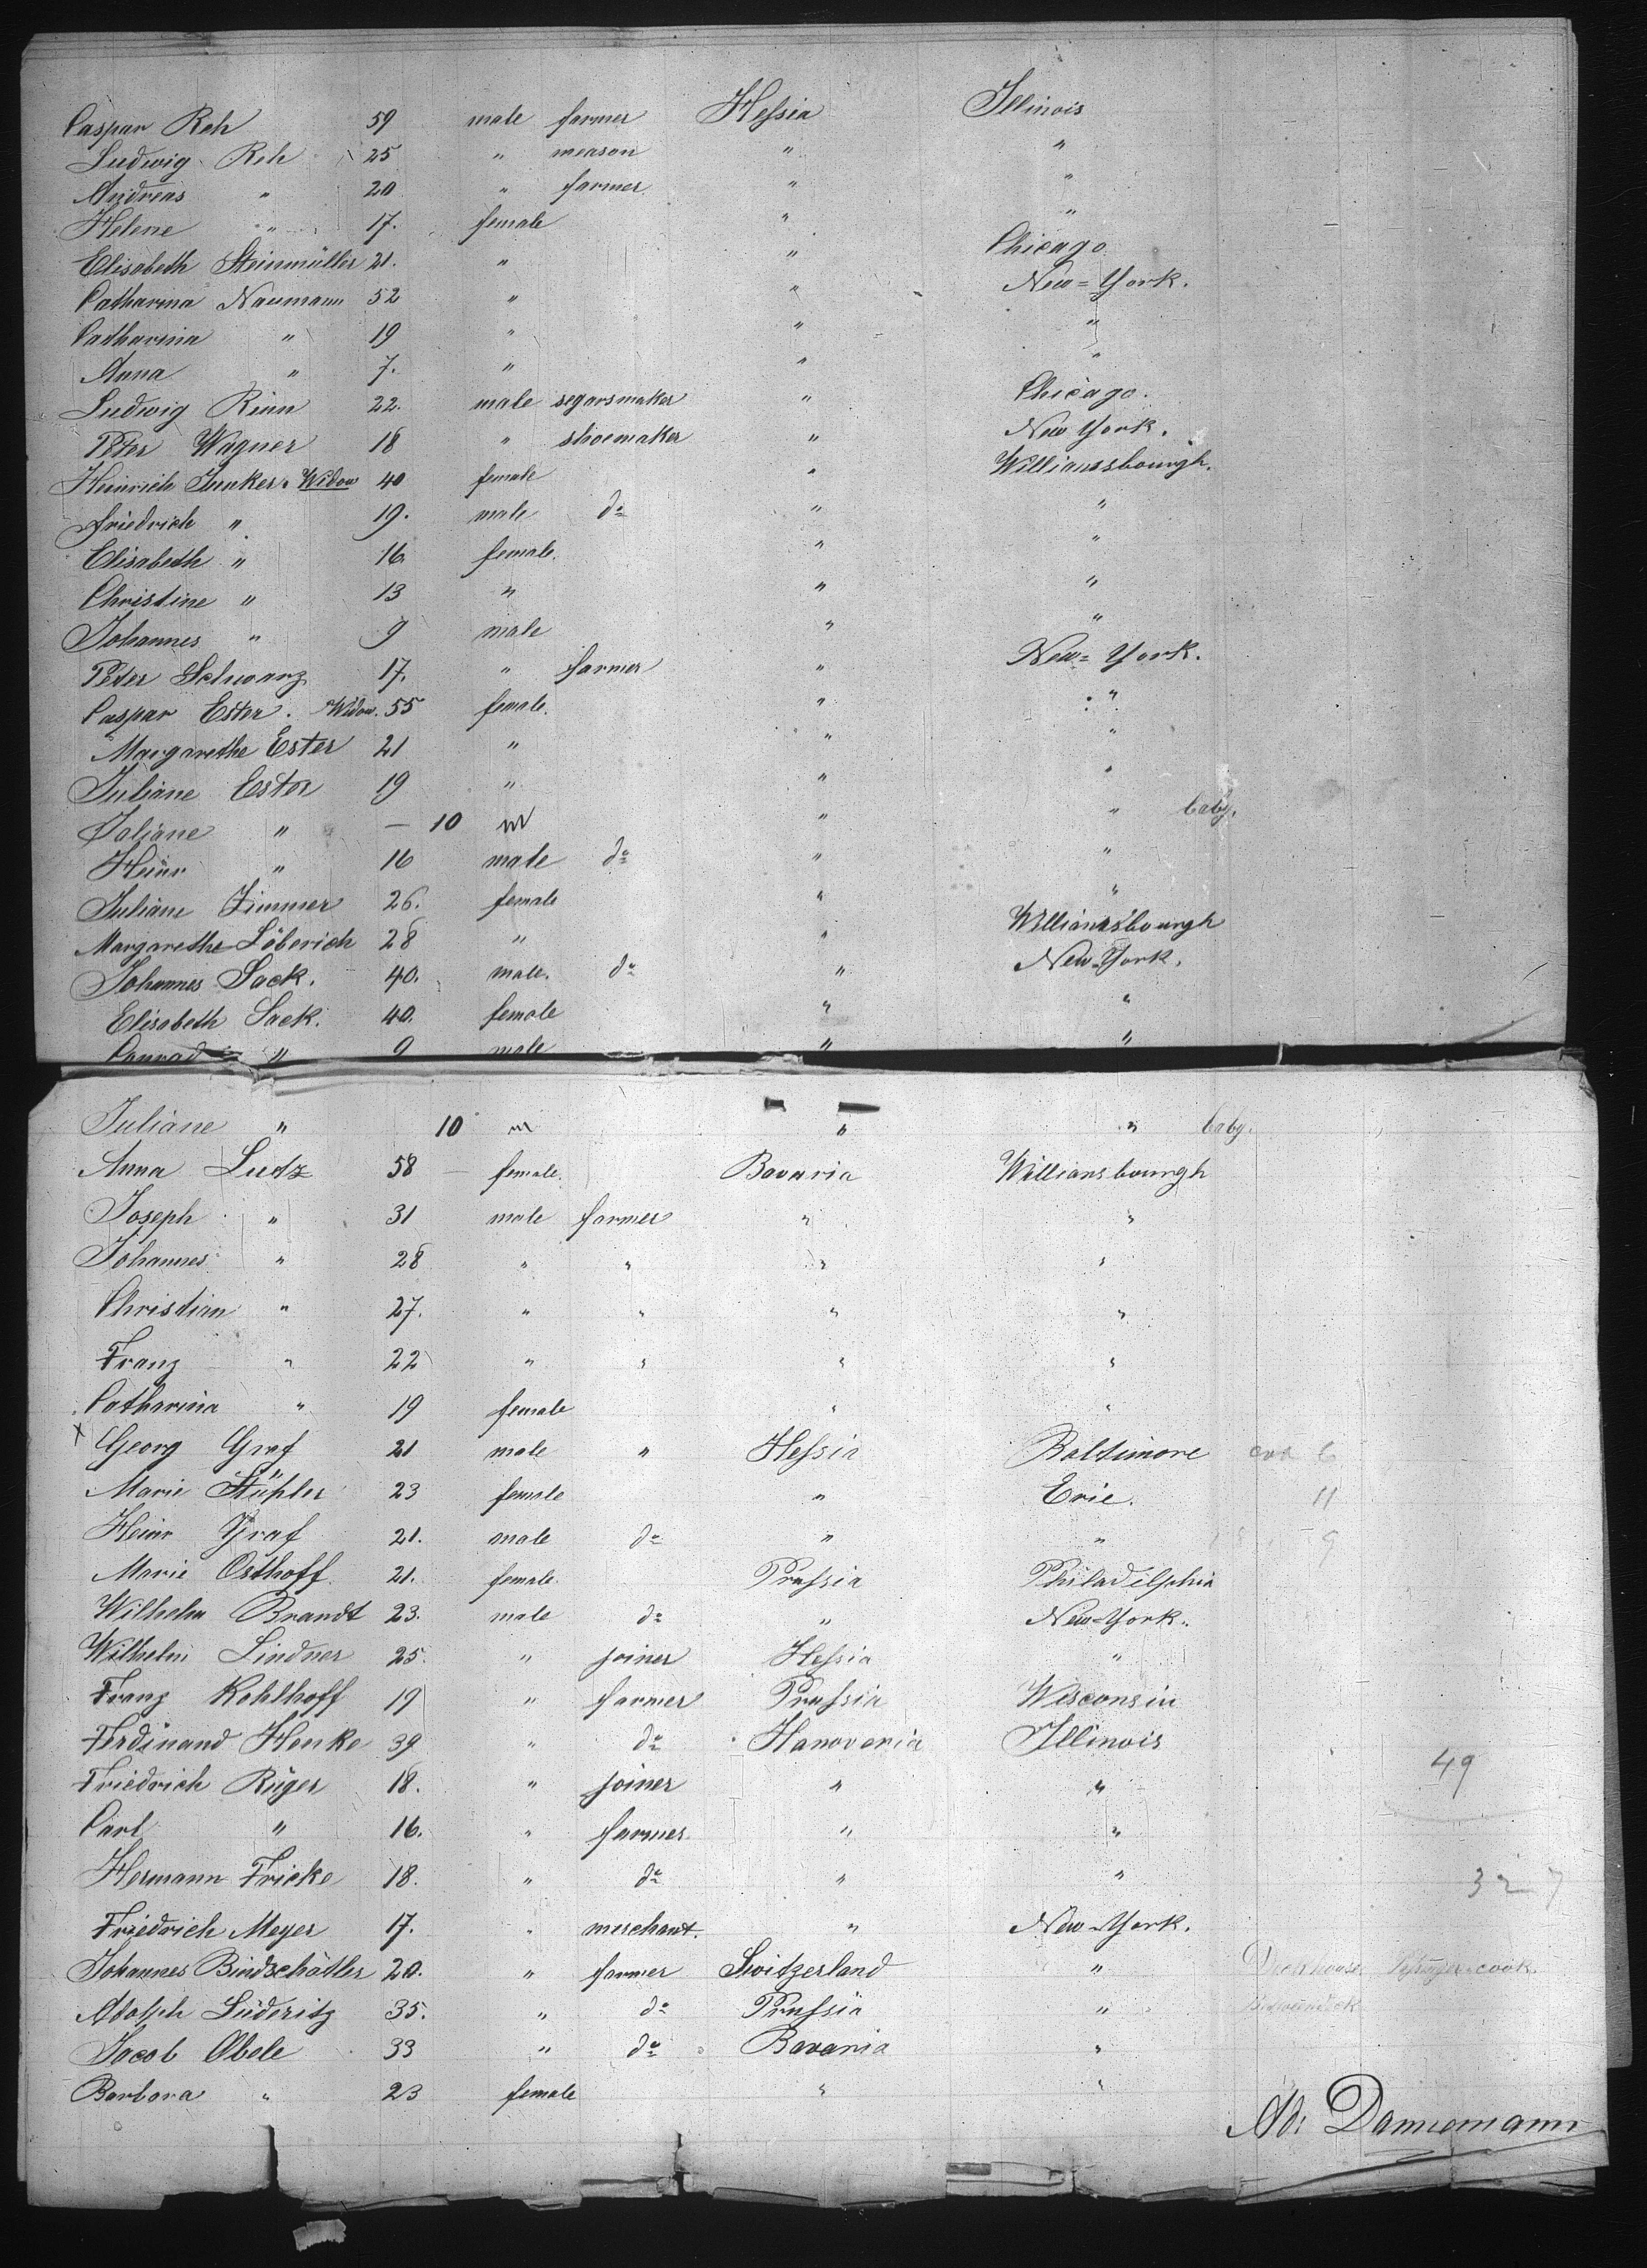 Caspar Reh 59 male farmer Hessia Illinois
Ludwig Reh 25 " meason " "
Andreas " 20 " farmer " "
Helene " 17. female " "
Elisabeth Steinmüller 21. " " Chicago
Catharina Naumann 52 " " New=York.
Catharina " 19 " " "
Anna " 7. " " "
Ludwig Rinn 22. male segarsmaker " Chicago.
Peter Wagner 18 " shoemaker " New York.
Heinrich Junker. Widow 40 female " Williamsbourgh.
Friedrich " 19. male do " "
Elisabeth " 16. female. " "
Christine " 13 " " "
Johannes " 9 male " "
Peter Schwarz 17. " farmer " New=York.
Caspar Ester. Widow. 55 female. " "
Margarethe Ester 21 " " "
Juliane Ester 19 " " "
Juliane " — 10 m " " baby.
Heinr " 16 male do " "
Juliane Zimmer 26. female " "
Margarethe Löberich 28 " " Williamsbourgh
Johannes Sack. 40. male. do " New-York.
Elisabeth Sack. 40. female " "
Conrad " 9 male " "
Juliane " 10 m " " baby.
Anna Lutz 58 — female. Bavaria Williansbourgh
Joseph " 31 male farmer " "
Johannes " 28 " " " "
Christian " 27. " " " "
Franz " 22 " " " "
Catharina " 19 female " "
x Georg Graf 21 male " Hessia Baltimore
Marie Stühler 23 female " Erie. 11
Heinr Graf 21. male do " " 9
Marie Osthoff 21. female. Prussia Philadelphia
Wilhelm Brandt 23. male do " New-York.
Wilhelm Lindner 25. " joiner Hessia "
Franz Kohlhoff 19 " farmer Prussia Wisconsin
Ferdinand Henke 39 " do Hanoveria Illinois
Friedrich Rüger 18. " joiner " " 49
Carl " 16. " farmer " "
Hermann Fricke 18. " do " " 327
Friedrich Meyer 17. " merchant. " New-York.
Johannes Bindschätler 20. " farmer Switzerland " Deckhouse cook
Adolph Lüderitz 35. " do Prussia "
Jacob Abele 33 " do Bavaria "
Barbara " 23 female " "
Ad. Dannemann